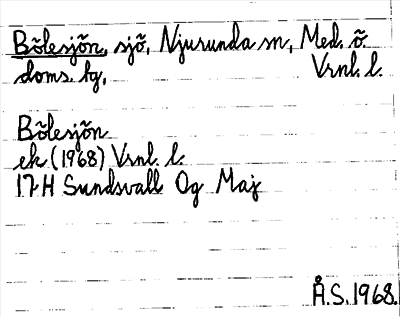 Bölesjön, sjö, Njurunda sn, Med. ö.
doms. bg, Vrnl. l.
Bölesjön
ek (1968) Vrnl. l.
17H Sundsvall Og Maj
Å.S. 1968.